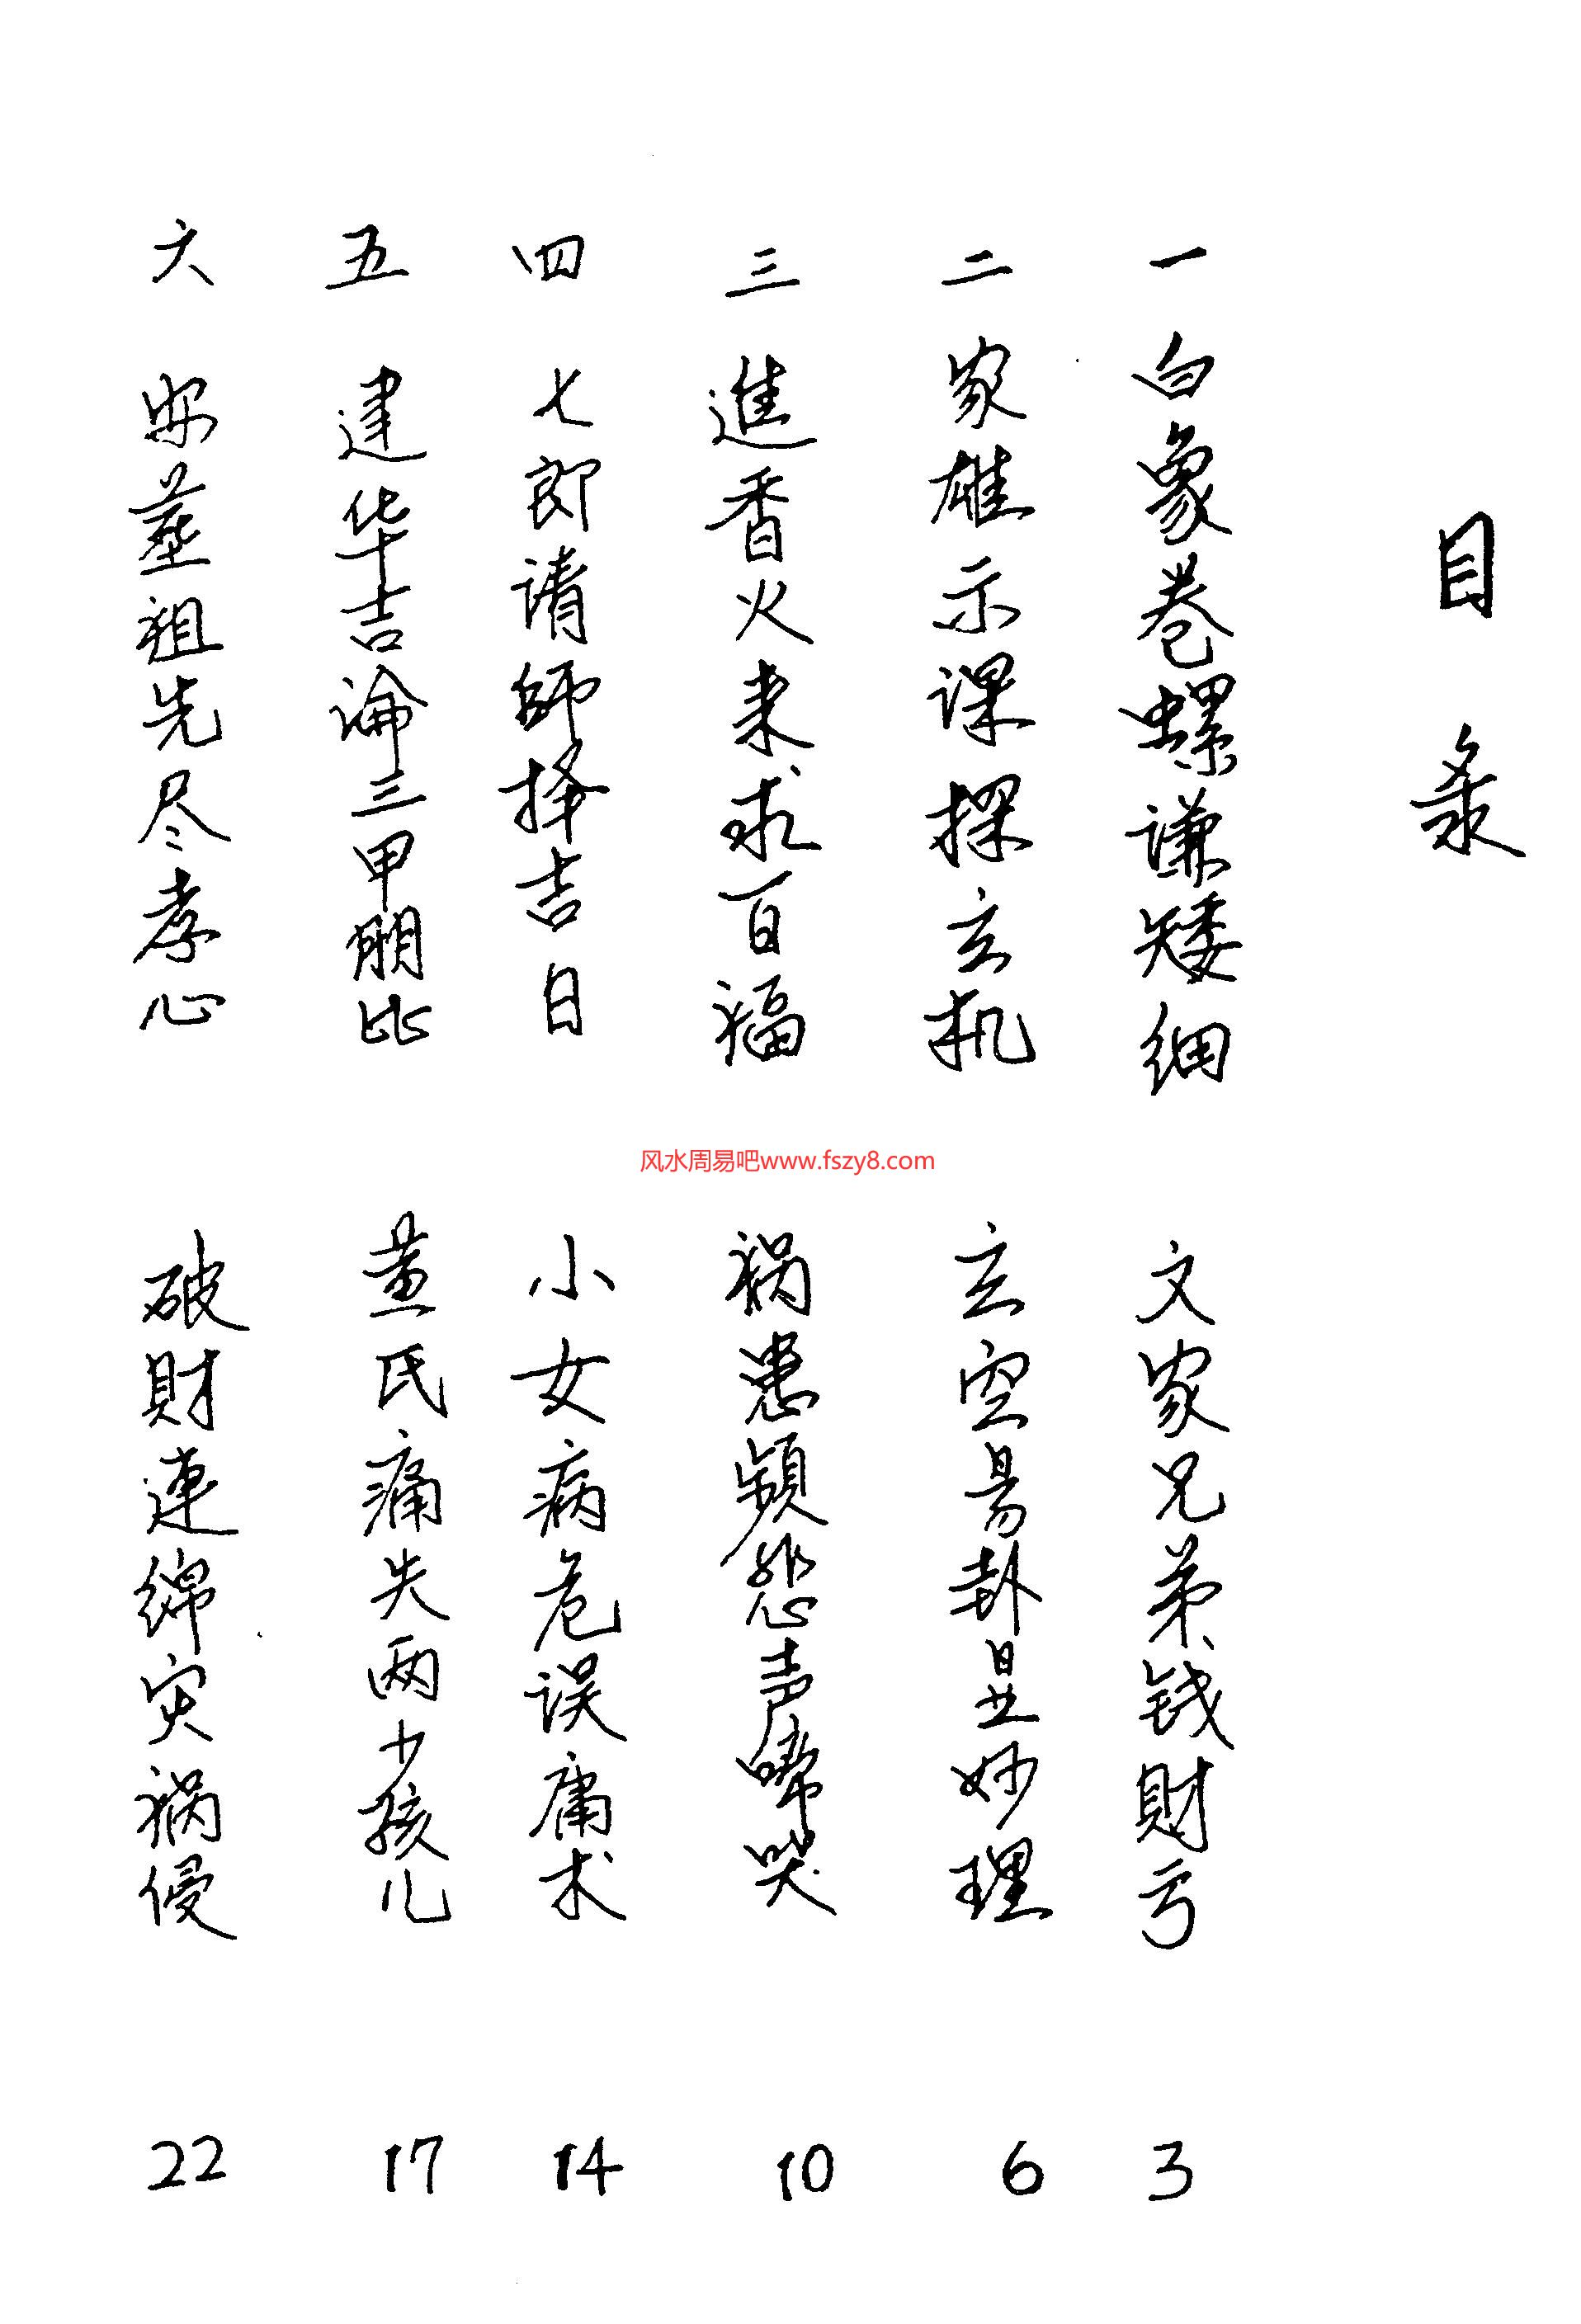 目录
一 白象卷螺谦矮细 文家兄弟钱財亏 3
二 家雄示课探玄机 玄空易卦显妙理 6
三 進香火来求百福 祸患频怨声啼哭 10
四 七郎请師择吉日 小女病危误庸术 14
五 建华吉論三甲朋比 黄氏痛失两少孩儿 17
六 安葬祖先尽孝心 破財連绵灾祸侵 22
风水周易吧www.fszy8.com